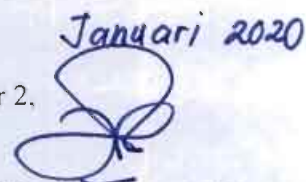 Januari 2020
r 2,